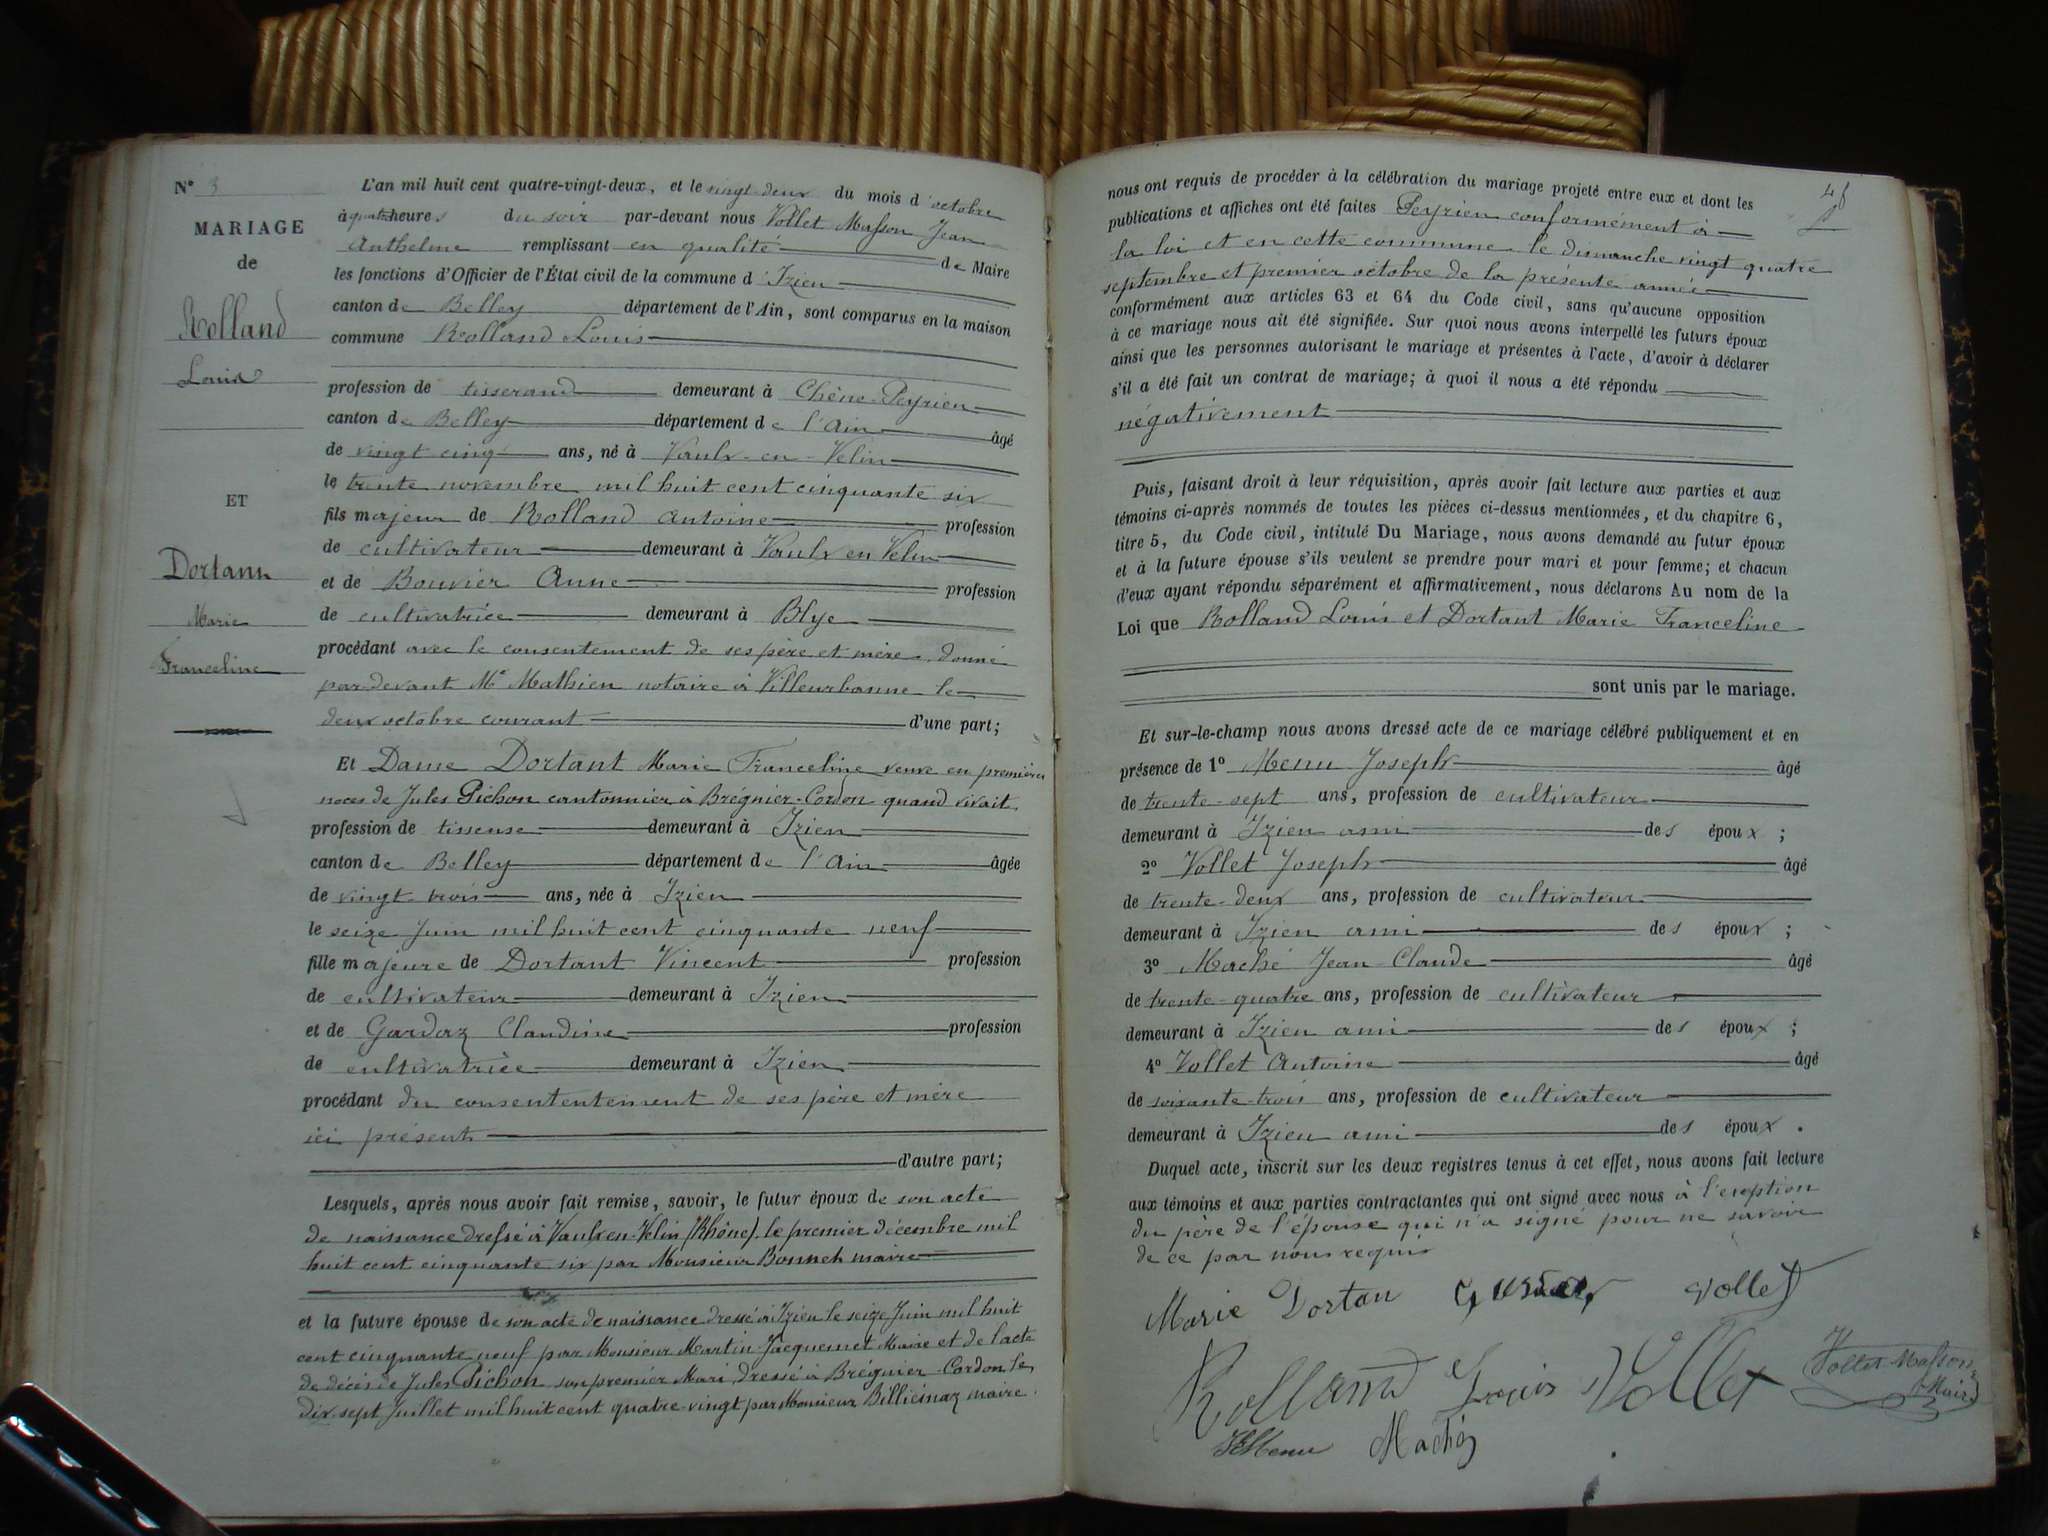 N° 3
MARIAGE
de
Rolland
Louis
ET
Dortann
Marie
Franceline
L'an mil huit cent quatre-vingt-deux, et le vingt deux du mois d'octobre
à quatre heures du soir par-devant nous Vollet Masson Jean
Anthelme remplissant en qualité de Maire
les fonctions d'Officier de l'État civil de la commune d'Izieu
canton de Belley département de l'Ain, sont comparus en la maison
commune Rolland Louis
profession de tisserand demeurant à Chêne-Peyrieu
canton de Belley département de l'Ain âgé
de vingt cinq ans, né à Vaulx-en-Velin
le trente novembre mil huit cent cinquante six
fils majeur de Rolland Antoine profession
de cultivateur demeurant à Vaulx en Velin
et de Bouvier Anne profession
de cultivatrice demeurant à Blye
procédant avec le consentement de ses père et mère donné
par devant Me Mathieu notaire à Villeurbanne le
deux octobre courant d'une part;
Et Dame Dortant Marie Franceline veuve en premières
noces de Jules Pichon cantonnier à Brégnier-Cordon quand vivait
profession de tisseuse demeurant à Izieu
canton de Belley département de l'Ain âgée
de vingt trois ans, née à Izieu
le seize Juin mil huit cent cinquante neuf
fille majeure de Dortant Vincent profession
de cultivateur demeurant à Izieu
et de Gardaz Claudine profession
de cultivatrice demeurant à Izieu
procédant du consententement de ses père et mère
ici présent
d'autre part;
Lesquels, après nous avoir fait remise, savoir, le futur époux de son acte
de naissance dressé à Vaulx en-Velin (Rhône) le premier décembre mil
huit cent cinquante six par Monsieur Bonnet maire
et la future épouse de son acte de naissance dressé à Izieu le seize Juin mil huit
cent cinquante neuf par Monsieur Martin-Jacquemet Maire et de l'acte
de décès de Jules Pichon son premier Mari dressé à Brégnier-Cordon le
dix sept Juillet mil huit cent quatre-vingt par Monsieur Billiémaz maire.
nous ont requis de procéder à la célébration du mariage projeté entre eux et dont les
publications et affiches ont été faites Peyrieu conformément à
la loi et en cette commune le dimanche vingt quatre
septembre et premier octobre de la présente année
conformément aux articles 63 et 64 du Code civil, sans qu'aucune opposition
à ce mariage nous ait été signifiée. Sur quoi nous avons interpellé les futurs époux
ainsi que les personnes autorisant le mariage et présentes à l'acte, d'avoir à déclarer
s'il a été fait un contrat de mariage; à quoi il nous a été répondu
négativement
Puis, faisant droit à leur réquisition, après avoir fait lecture aux parties et aux
témoins ci-après nommés de toutes les pièces ci-dessus mentionnées, et du chapitre 6,
titre 5, du Code civil, intitulé Du Mariage, nous avons demandé au futur époux
et à la future épouse s'ils veulent se prendre pour mari et pour femme; et chacun
d'eux ayant répondu séparément et affirmativement, nous déclarons Au nom de la
Loi que Rolland Louis et Dortant Marie Franceline
sont unis par le mariage.
Et sur-le-champ nous avons dressé acte de ce mariage célébré publiquement et en
présence de 1° Menu Joseph âgé
de trente-sept ans, profession de cultivateur
demeurant à Izieu ami des époux ;
2° Vollet Joseph âgé
de trente-deux ans, profession de cultivateur
demeurant à Izieu ami des époux ;
3° Maché Jean-Claude âgé
de trente-quatre ans, profession de cultivateur
demeurant à Izieu ami des époux ;
4° Vollet Antoine âgé
de soixante-trois ans, profession de cultivateur
demeurant à Izieu ami des époux.
Duquel acte, inscrit sur les deux registres tenus à cet effet, nous avons fait lecture
aux témoins et aux parties contractantes qui ont signé avec nous à l'exeption
du père de l'épouse qui n'a signé pour ne savoir
de ce par nous requis
Marie Dortan Vollet
Rolland Louis Vollet Vollet-Masson
Maire
Menu Maché